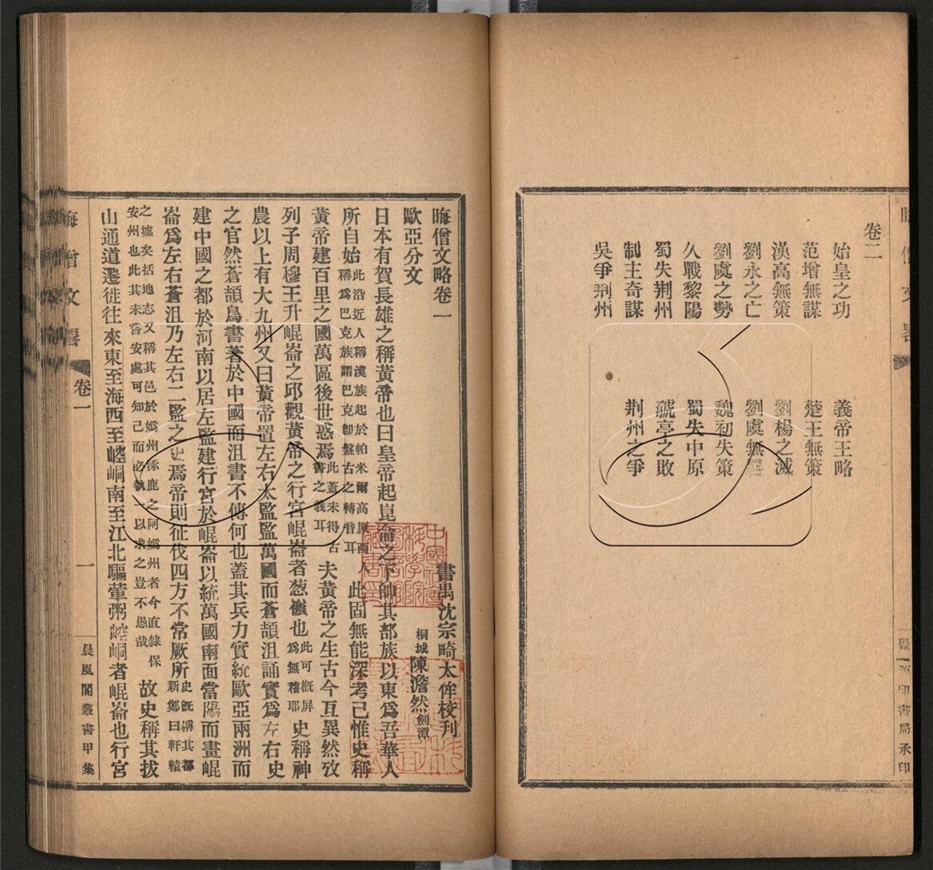 卷二
始皇之功 義帝王略
范增無謀 楚王無策
漢高無策 劉楊之滅
劉永之亡 劉虞無
劉虞之勢 魏初失策
久戰黎陽 蜀失中原
蜀失荆州 猇亭之敗
制主奇謀 荆州之爭
吳爭荆州
豐源印書局承印
晦僧文略卷一 番禺沈宗畸太侔校刋
歐亞分文 桐城陳澹然劍潭
日本有賀長雄之稱黃帝也曰皇帝起崑崙之下帥其部族以東爲吾華人
所自始此沿近人稱漢族起於帕米爾高原西稱爲巴克族謂巴克卽盤古之轉音耳此固無能深考已惟史稱
黃帝建百里之國萬區後世惑焉此蓋未得古書之義耳夫黃帝之生古今互異然攷
列子周穆王升崐崙之邱觀黃帝之行宮崐崙者葱嶺也此可概屏爲無稽耶史稱神
農以上有大九州又曰黃帝置左右太監監萬國而蒼頡沮誦實爲左右史
之官然蒼頡鳥書著於中國而沮書不傳何也蓋其兵力實統歐亞兩洲而
建中國之都於河南以居左監建行宮於崐崙以統萬國南面當陽而畫崐
崙爲左右蒼沮乃左右二監之史焉帝則征伐四方不常厥所史旣稱其都新鄭曰軒轅
之墟矣括地志又稱其邑於嬀州涿鹿之阿嬀州者今直隸保安州也此其未嘗安處可知已而必執一以求之豈不愚哉故史稱其披
山通道遷徙往來東至海西至崆峒南至江北驅葷粥崆峒者崐崙也行宮
晦僧文畧
卷一
一
晨風閣叢書甲集